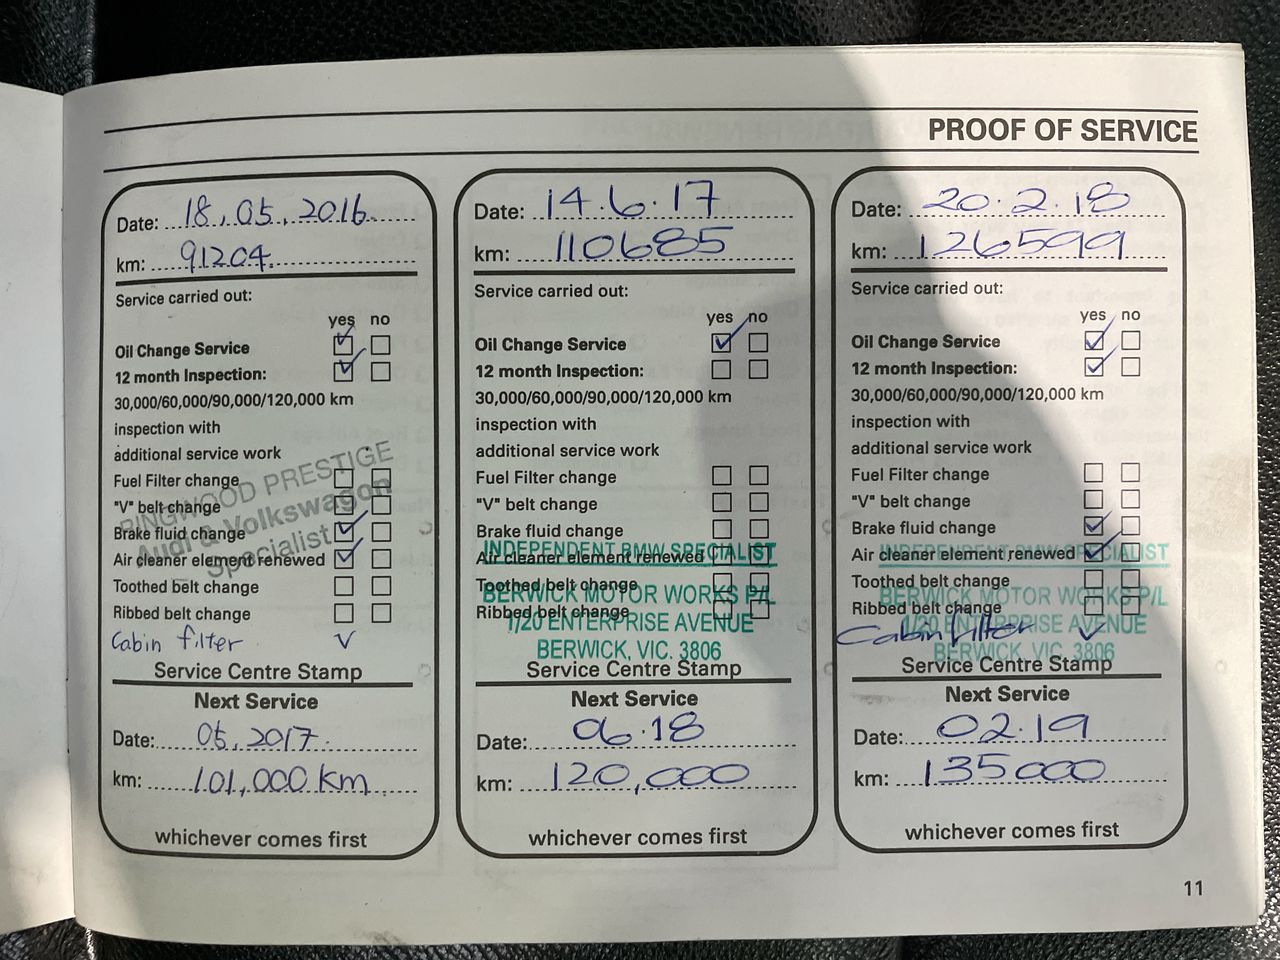 PROOF OF SERVICE
Date: 18.05.2016
km: 91204
Service carried out:
yes no
Oil Change Service
12 month Inspection:
30,000/60,000/90,000/120,000 km
inspection with
additional service work
Fuel Filter change
"V" belt change
Brake fluid change
Air cleaner element renewed
Toothed belt change
Ribbed belt change
RINGWOOD PRESTIGE
Audi & Volkswagon
Specialist
Cabin filter ✓
Service Centre Stamp
Next Service
Date: 05.2017.
km: 101,000 km
whichever comes first
Date: 14.6.17
km: 110685
Service carried out:
yes no
Oil Change Service
12 month Inspection:
30,000/60,000/90,000/120,000 km
inspection with
additional service work
Fuel Filter change
"V" belt change
Brake fluid change
Air cleaner element renewed
Toothed belt change
Ribbed belt change
INDEPENDENT BMW SPECIALIST
BERWICK MOTOR WORKS P/L
1/20 ENTERPRISE AVENUE
BERWICK, VIC. 3806
Service Centre Stamp
Next Service
Date: 06.18
km: 120,000
whichever comes first
Date: 20.2.18
km: 126599
Service carried out:
yes no
Oil Change Service
12 month Inspection:
30,000/60,000/90,000/120,000 km
inspection with
additional service work
Fuel Filter change
"V" belt change
Brake fluid change
Air cleaner element renewed
Toothed belt change
Ribbed belt change
INDEPENDENT BMW SPECIALIST
BERWICK MOTOR WORKS P/L
1/20 ENTERPRISE AVENUE
BERWICK, VIC. 3806
Cabin filter ✓
Service Centre Stamp
Next Service
Date: 02.19
km: 135000
whichever comes first
11